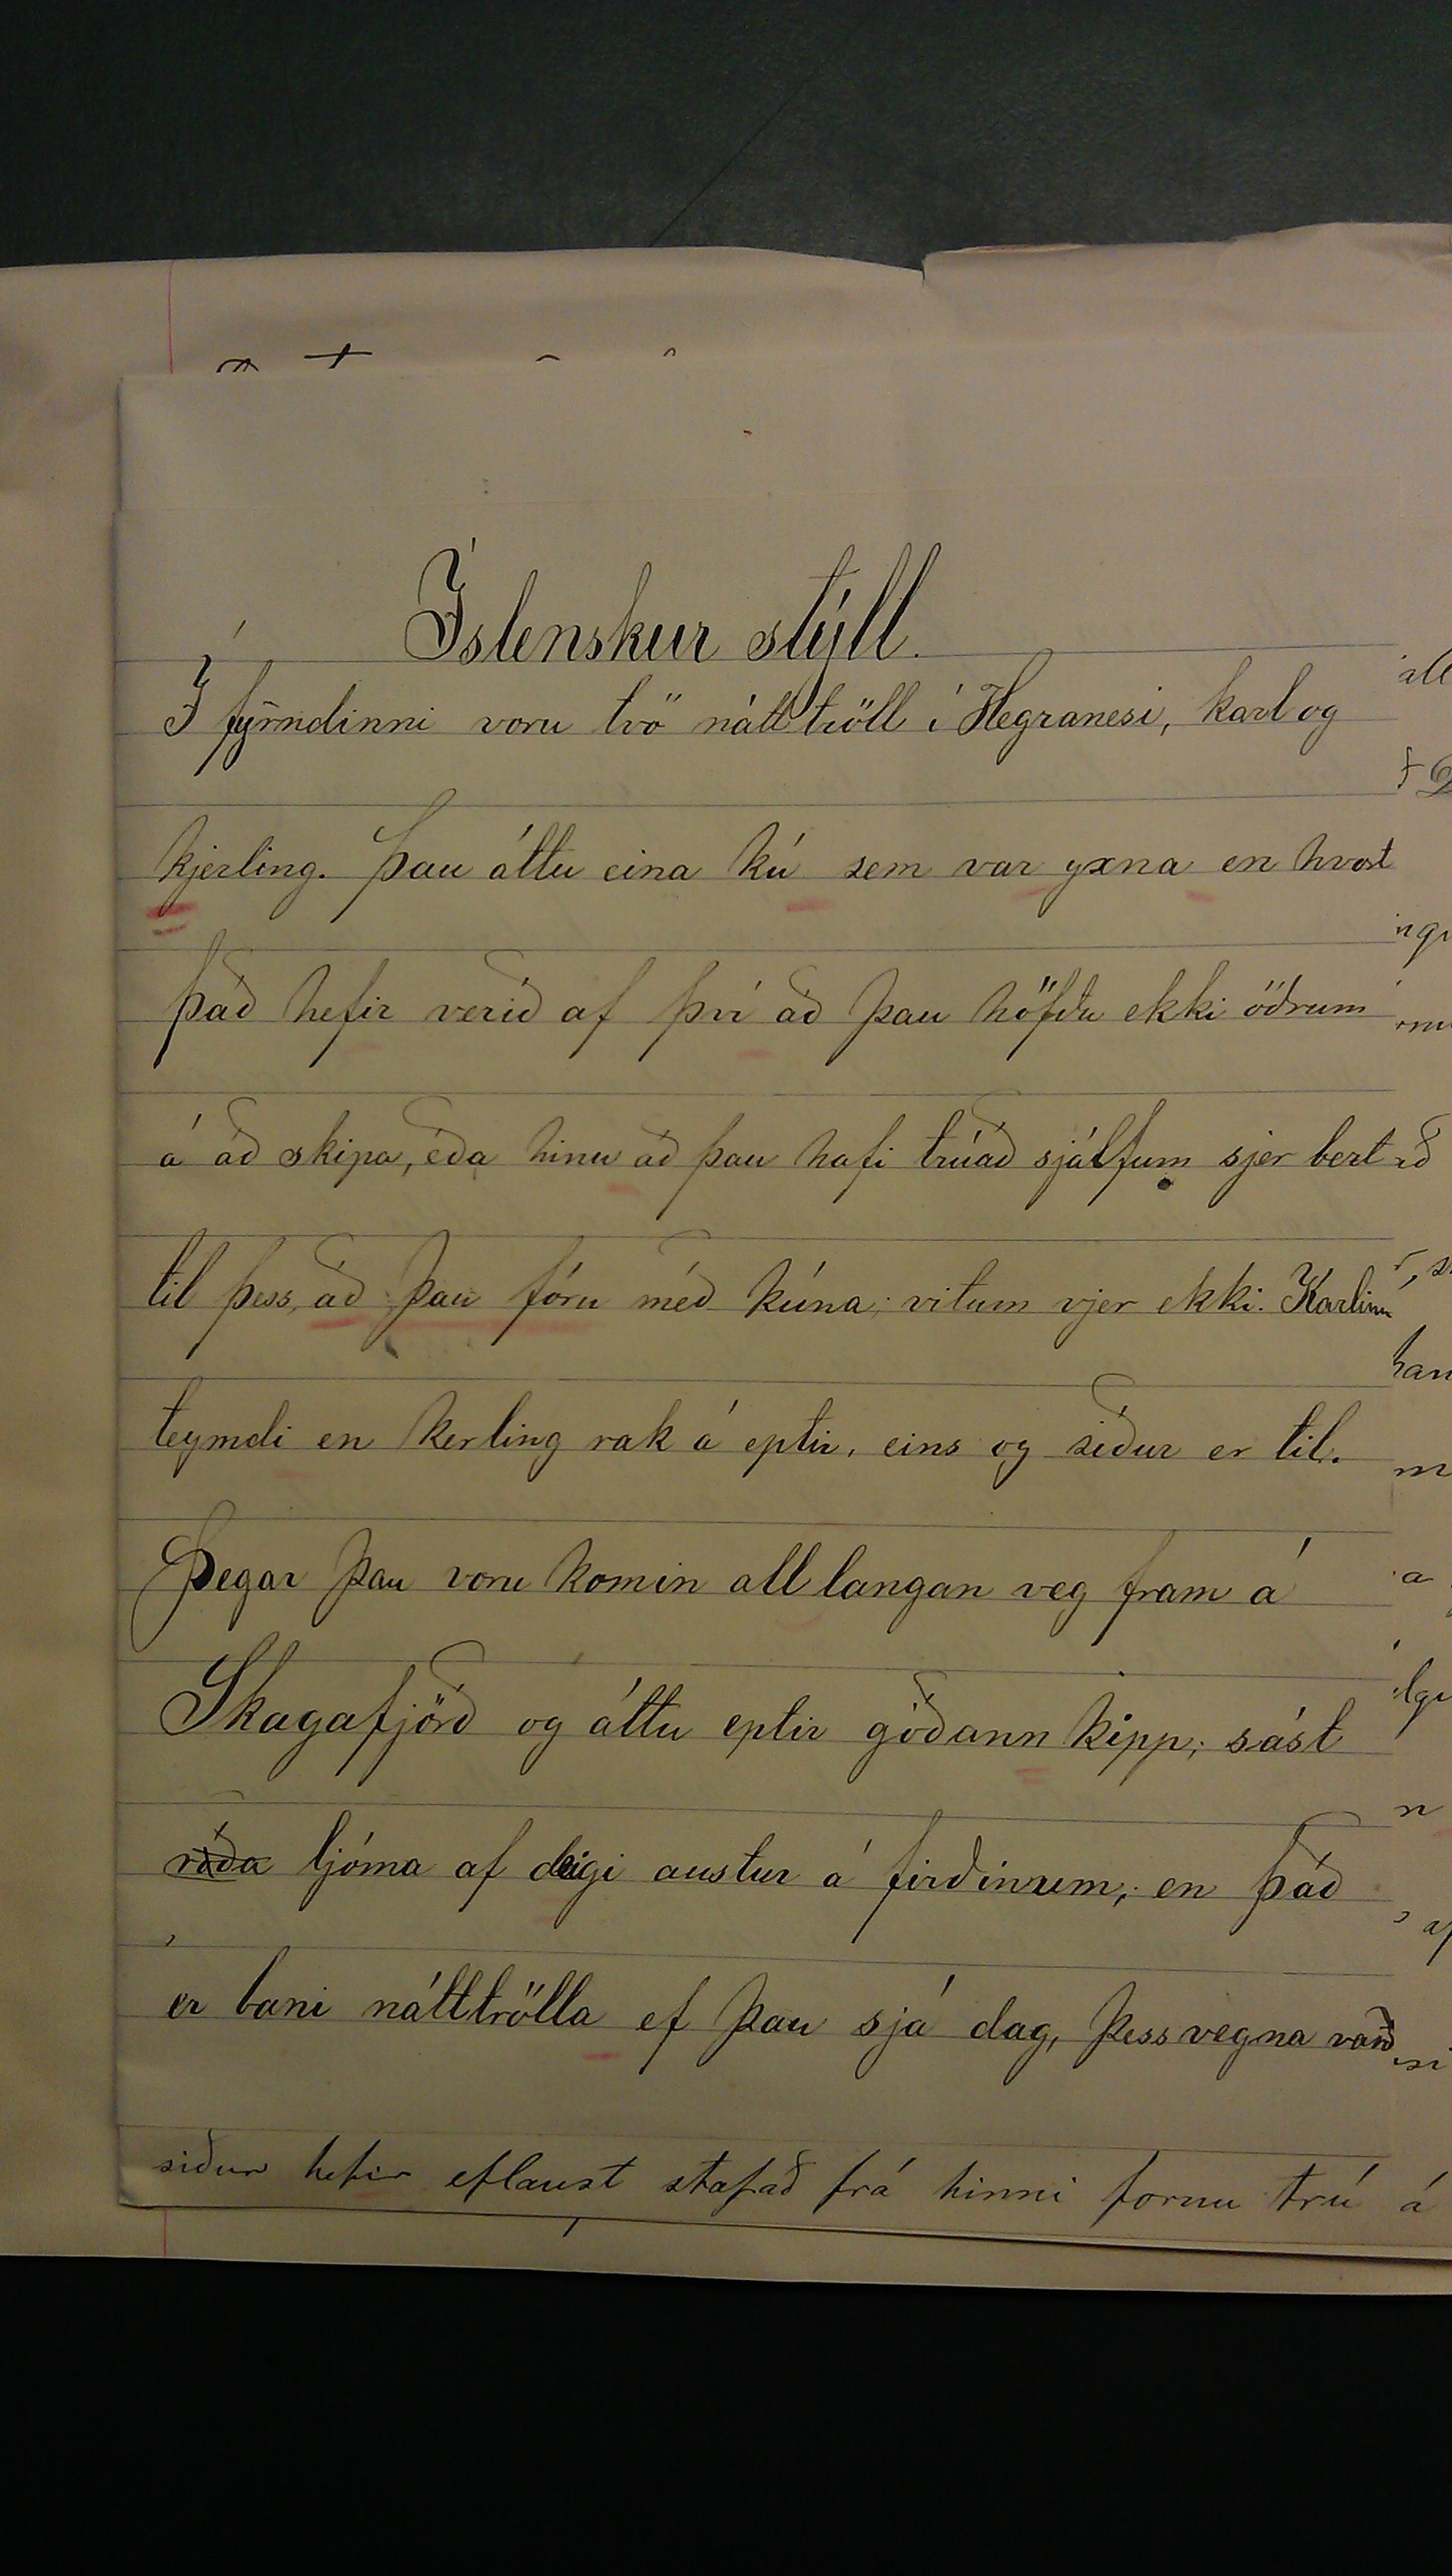 Íslenskur stýll.
Í fyrndinni voru tvö nátttröll í Hegranesi, karl og
kjerling. Þau áttu eina kú sem var yxna en hvort
það hefir verið af því að þau höfðu ekki öðrum
á að skipa, eða hinu að þau hafi trúað sjálfum sjer bezt
til þess, að þau fóru með kúna; vitum vjer ekki. Karlinn
teymdi en kerling rak á eptir, eins og siður er til.
Þegar þau voru komin all langan veg fram á
Skagafjörð og áttu eptir góðann kipp; sást
ljóma af deigi austur á firðinum; en það
er bani nátttrölla ef þau sjá dag, þess vegna varð
siður hefir eflaust stafað frá hinni fornu trú á